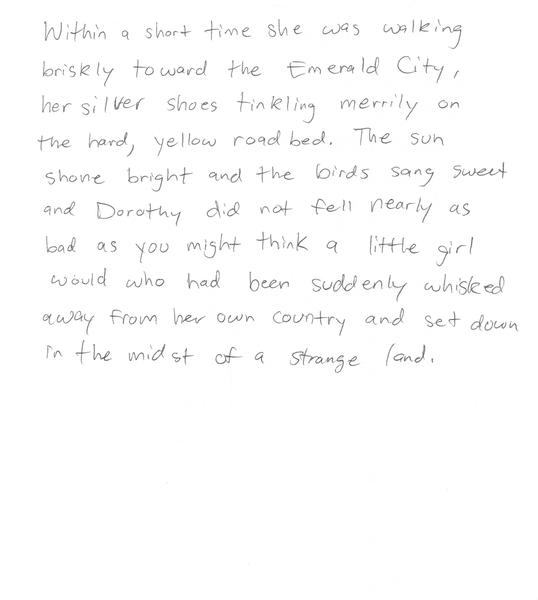 Within a short time she was walking
briskly toward the Emerald City,
her silver shoes tinkling merrily on
the hard, yellow road bed. The sun
shone bright and the birds sang sweet
and Dorothy did not fell nearly as
bad as you might think a little girl
would who had been suddenly whisked
away from her own country and set down
in the midst of a strange land.